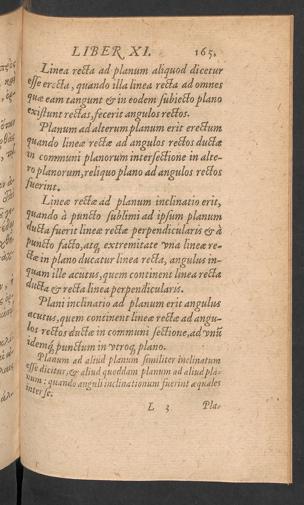 LIBER XI. 165.
Linea recta ad planum aliquod dicetur
esse erecta, quando illa linea recta ad omnes
quæ eam tangunt & in eodem subiecto plano
existunt rectas, fecerit angulos rectos.
Planum ad alterum planum erit erectum
quando lineæ rectæ ad angulos rectos ductæ
in communi planorum intersectione in alte-
ro planorum, reliquo plano ad angulos rectos
fuerint.
Lineæ rectæ ad planum inclinatio erit,
quando à puncto sublimi ad ipsum planum
ducta fuerit lineæ rectæ perpendicularis & à
puncto facto, atq; extremitate vna lineæ re-
ctæ in plano ducatur linea recta, angulus in-
quam ille acutus, quem continent linea recta
ducta & recta linea perpendicularis.
Plani inclinatio ad planum erit angulus
acutus, quem continent lineæ rectæ ad angu-
los rectos ductæ in communi sectione, ad vnū
idemq; punctum in vtroq; plano.
Planum ad aliud planum similiter inclinatum
esse dicitur, & aliud quoddam planum ad aliud pla-
num: quando anguli inclinationum fuerint æquales
inter se.
L 3 Pla-